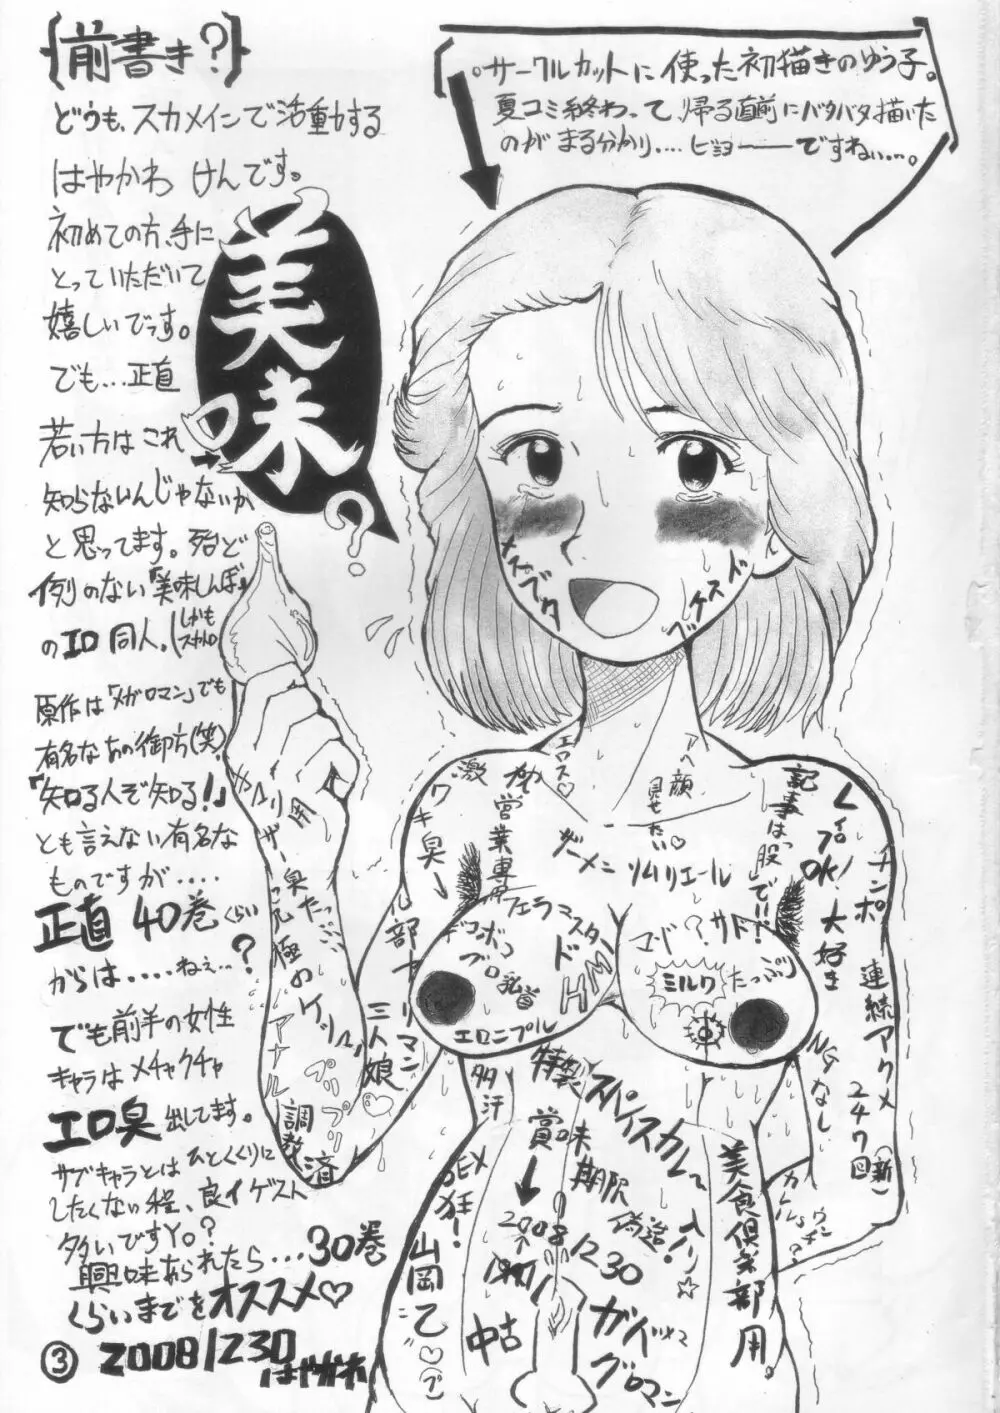 {前書き?}
どうも、スカメインで活動する
はやかわ けんです。
初めての方、手に
とっていただいて
嬉しいでっす。
でも…正直
若い方はこれ
知らないんじゃないか
と思ってます。殆ど
例のない『美味しんぼ』
のエロ同人。(しかもスカトロ
原作は「メガロマン」でも
有名なあの御方(笑)
『知る人ぞ知る!』
とも言えない有名な
ものですが....
正直40巻くらい
からは....ねぇ..?
でも前半の女性
キャラはメチャクチャ
エロ臭出してます。
サブキャラとはひとくくりに
したくない程、良イゲスト
多いですYo?
興味あられたら...30巻
くらいまでをオススメ♡
2008/1230
はやかわ
③
。サークルカットに使った初描きのゆう子。
夏コミ終わって、帰る直前にバタバタ描いた
のがまる分かり.... ヒョーーーですねぃ..。
美味?
メスブタ
ドスケベ
エロス♡
アヘ顔
見せたい♡
激
ワキ臭
営業専用
ザーメン ソムリエール
記事は
股で!!
レイプOK!
チンポ大好き
連続アクメ
247回
(新)
NGなし
フェラマスター
ドHM
デコボコ
エロ乳首
エロニプル
サド?
ミルク
たっぷり
ヤリ部
ヤリマン
三人娘
究極の
アナル
プリプリ
調教済
多汗
SEX狂!
特製スパイスカレ〜
入り☆
賞味
期限
偽造!
2008/1230
中古
山岡乙♡
美食倶楽部用。
カレー?
ウンチ?
ガイッ
グロマン